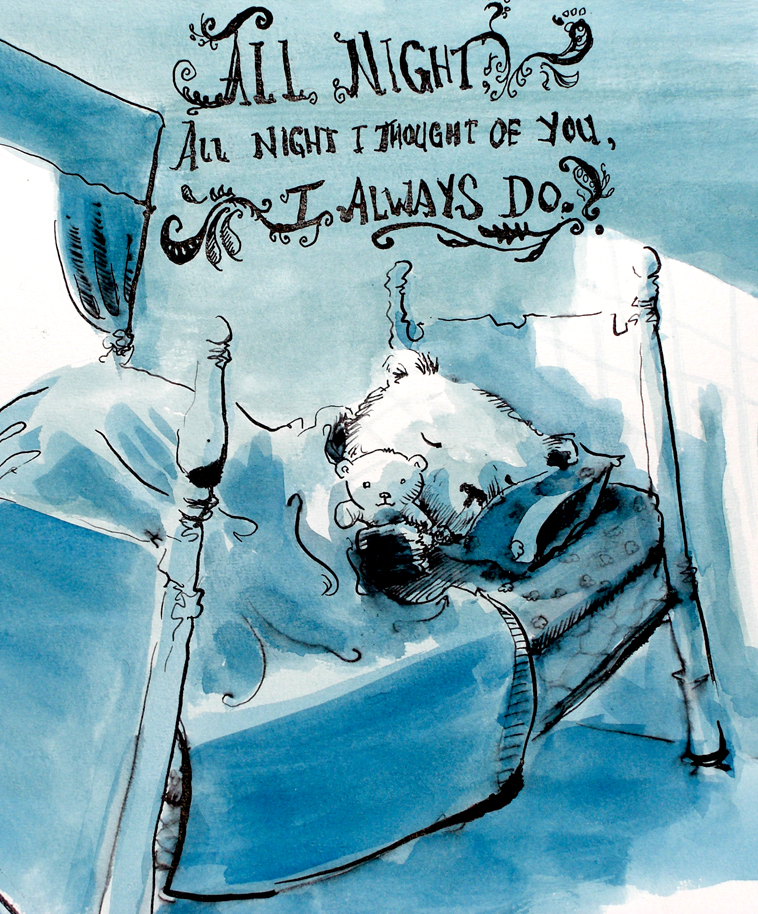 ALL NIGHT
ALL NIGHT I THOUGHT OF YOU,
I ALWAYS DO.